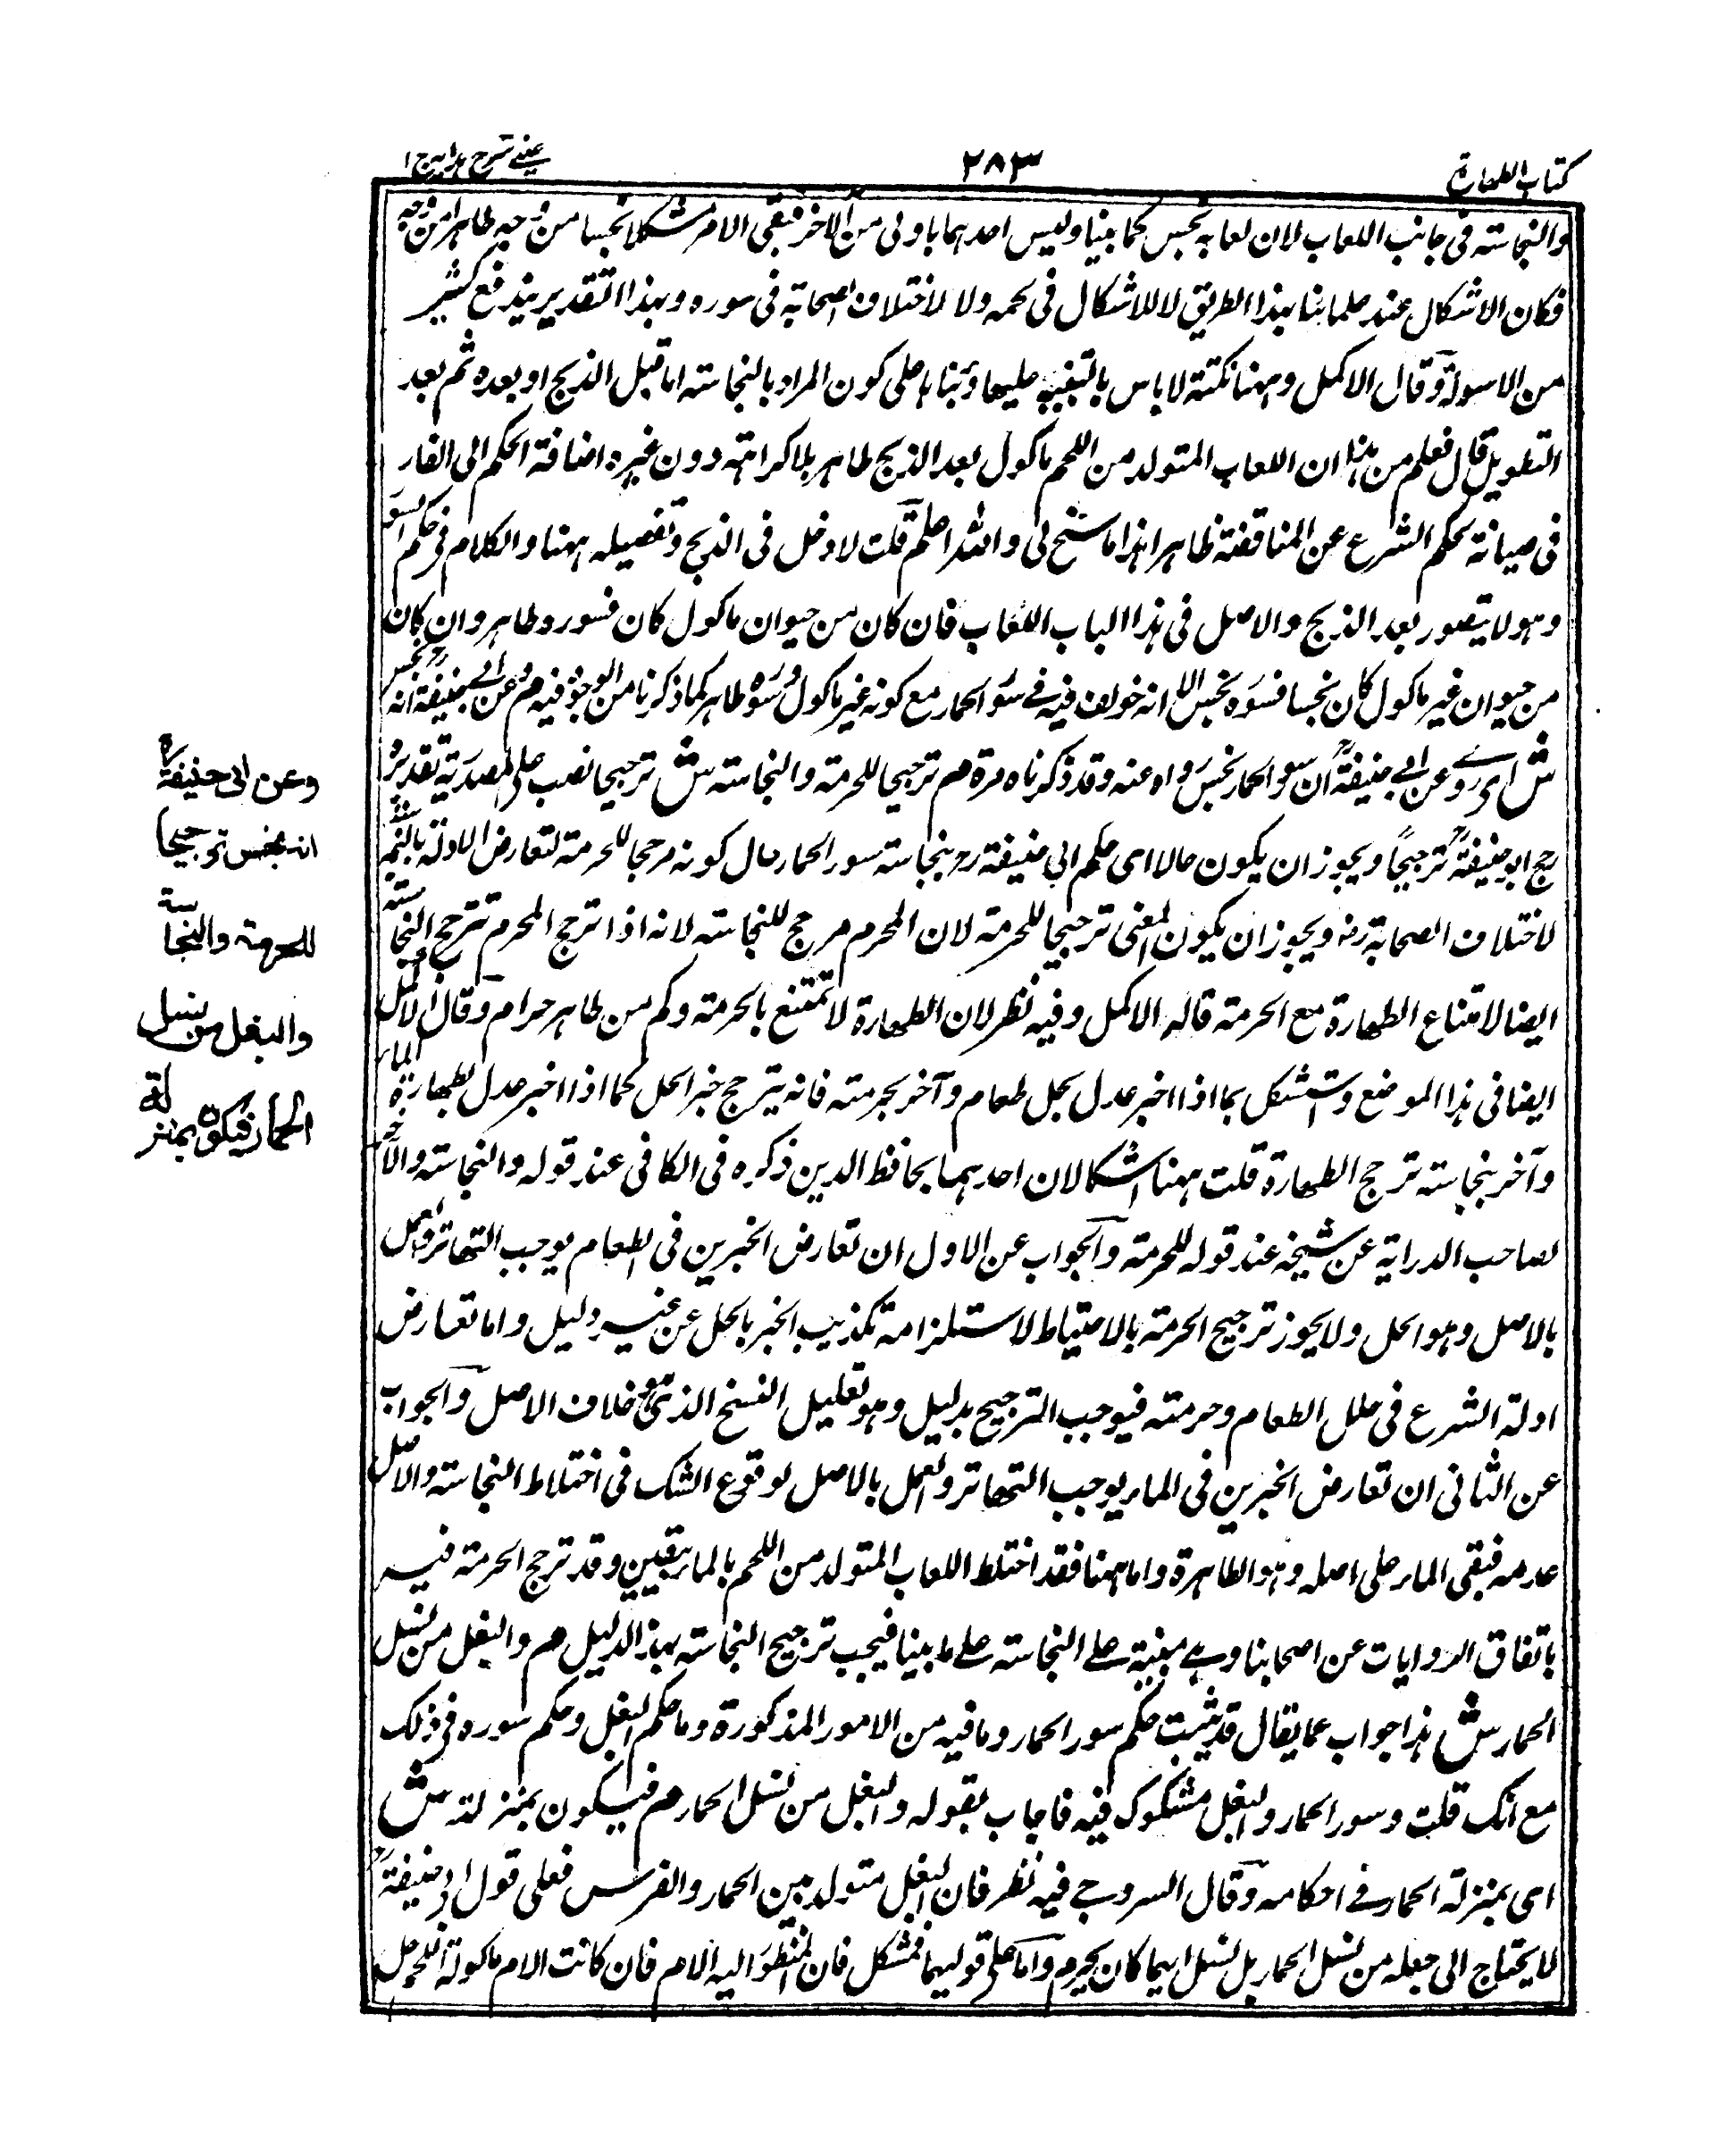 كتاب الطهارة
٢٨٣
عينے شرح ہدايہ ج ١
والنجاسته فى جانب اللعاب لان لعابه نجس كما بينا وليس احدهما باولى من الآخر فبقى الامر مشكلا نجسا من وجه طاهرا من وجه
فكان الاشكال عند علمائنا بهذا الطريق لا للاشكال فى لحمه ولا لاختلاف الصحابة فى سوره وبهذا التقدير يندفع كثير
من الاسولة وقال الاكمل وههنا نكتة لا باس بالتنبيه عليها وبناءها على كون المراد بالنجاسته اما قبل الذبح او بعده ثم بعد
التطويل قال فعلم من هذا ان اللعاب المتولد من اللحم ماكول بعد الذبح طاهر بلا كراهته دون غيره اضافة الحكم الى الفار
فى صيانة لحكم الشرع عن المناقضة ظاهرا هذا ما سنح لى والله اعلم قلت لا دخل فى الذبح وتفصيله ههنا والكلام فى حكم السور
وهو لا يتصور بعد الذبح والاصل فى هذا الباب اللعاب فان كان من حيوان ماكول كان فسوره طاهر وان كان
من حيوان غير ماكول كان نجسا فسوره نجس الا انه خولف فيه فے سور الحمار مع كونه غير ماكول وسوره طاهر كما ذكرنا من الوجوه فيه م وعن ابى حنيفة رح انه نجس
ش اى روے عن ابى حنيفة رح ان سور الحمار نجس رواه عنه وقد ذكرناه مرة م ترجيحا للحرمته والنجاسته ش ترجيحا نصب على المصدرية تقديره
رجح ابو حنيفة رح ترجيحا ويجوز ان يكون حالا اى حكم ابى حنيفة رح بنجاسته سور الحمار حال كونه مرجحا للحرمته لتعارض الادلة بالنسبة
لاختلاف الصحابة رض ويجوز ان يكون المعنى ترجيحا للحرمته لان المحرم مرجح للنجاسته لانه اذا ترجح المحرم تترجح النجاسته
ايضا لامتناع الطهارة مع الحرمته قاله الاكمل وفيه نظر لان الطهارة لا تمتنع بالحرمته وكم من طاهر حرام وقال الاكمل
ايضا فى هذا الموضع واستشكل بما اذا اخبر عدل بحل طعام وآخر بحرمته فانه يترجح خبر الحل كما اذا اخبر عدل بطهارة الماء
وآخر بنجاسته ترجح الطهارة قلت ههنا اشكالان احدهما لحافظ الدين ذكره فى الكافى عند قوله والنجاسته والآخر
لصاحب الدراية عن شيخه عند قوله للحرمته والجواب عن الاول ان تعارض الخبرين فى الطعام يوجب التهاتر والعمل
بالاصل وهو الحل ولا يجوز ترجيح الحرمته بالاحتياط لاستلزامه تكذيب الخبر بالحل عن غير دليل واما تعارض
ادلة الشرع فى حل الطعام وحرمته فيوجب الترجيح بدليل وهو تعليل النسخ الذى هو خلاف الاصل والجواب
عن الثانى ان تعارض الخبرين فى الماء يوجب التهاتر والعمل بالاصل لوقوع الشك فى اختلاط النجاسته والاصل
عدمه فبقى الماء على اصله وهو الطاهرة واما ههنا فقد اختلط اللعاب المتولد من اللحم بالماء بيقين وقد ترجح الحرمته فيه
باتفاق الروايات عن اصحابنا وهے مبنية علے النجاسته علے ما بينا فيجب ترجيح النجاسته بهذا الدليل م والبغل من نسل
الحمار ش هذا جواب عما يقال قد ثبت حكم سور الحمار وما فيه من الامور المذكورة وما حكم البغل وحكم سوره فى ذلك
مع انك قلت وسور الحمار والبغل مشكوك فيه فاجاب بقوله والبغل من نسل الحمار م فيكون بمنزلته ش
اى بمنزلة الحمار فے احكامه وقال السروجے فيه نظر فان البغل متولد بين الحمار والفرس فعلى قول ابى حنيفة رح
لا يحتاج الى جعله من نسل الحمار بل نسل ايهما كان يحرم واما على قوليهما فمشكل فان المنظور اليه الام فان كانت الام ماكولة اللحم حل
وعن ابى حنيفة رح
انه نجس ترجيحا
للحرمته والنجاسة
والبغل من نسل
الحمار فيكون بمنزلته